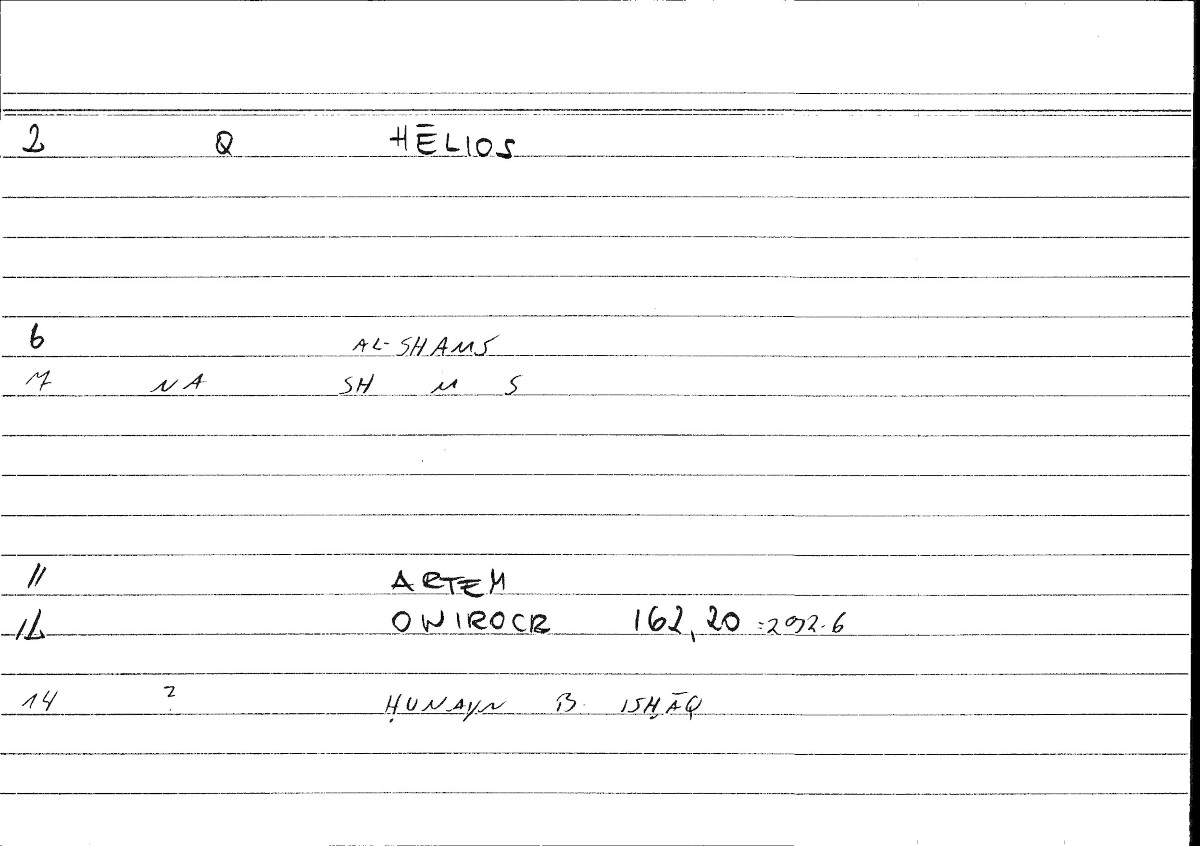 2 Q HĒLIOS
6 AL-SHAMS
7 NA SH M S
11 ARTEM
12 ONIROCR 162,20 =292.6
14 ? ḤUNAYN B. ISḤĀQ